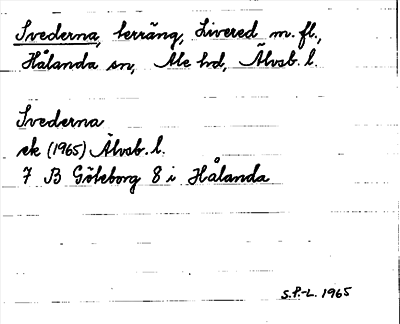 Svederna, terräng, Livered m. fl.,
Hålanda sn, Ale hd, Älvsb. l.
Svederna
ek (1965) Älvsb. l.
7 B Göteborg 8 i Hålanda
S.P.-L. 1965